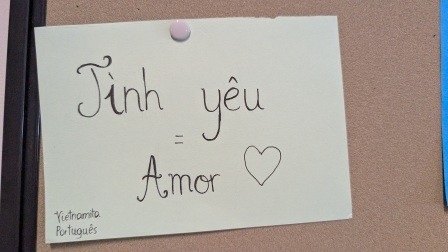 Tình yêu
=
Amor ♡
Vietnamita
Português